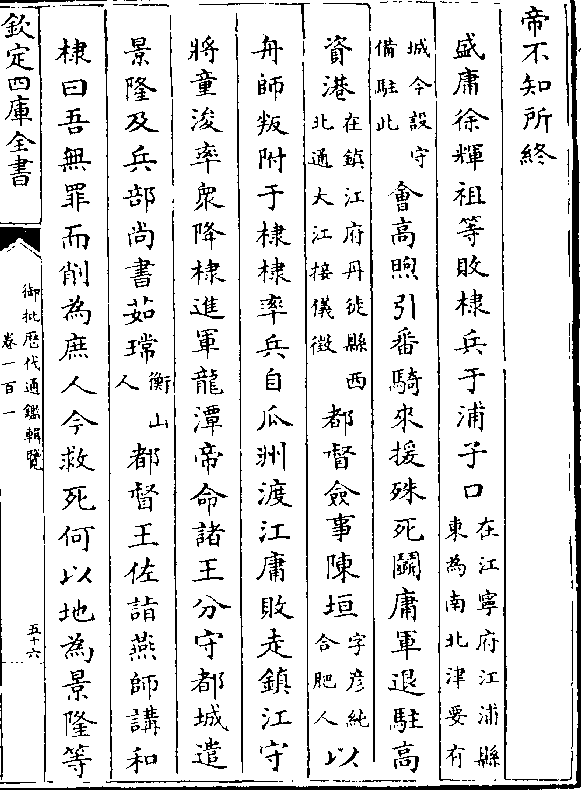 帝不知所終
盛庸徐輝祖等敗棣兵于浦子口在江寧府江浦縣東為南北津要有
城今設守備駐此會高煦引番騎來援殊死鬭庸軍退駐高
資港在鎮江府丹徒縣西北通大江接儀徵都督僉事陳垣字彦純合肥人以
舟師叛附于棣棣率兵自瓜洲渡江庸敗走鎮江守
將童浚率衆降棣進軍龍潭帝命諸王分守都城遣
景隆及兵部尚書茹瑺衡山人都督王佐詣燕師講和
棣曰吾無罪而削為庶人今救死何以地為景隆等
欽定四庫全書
御批歷代通鑑輯覽
卷一百一
五十六